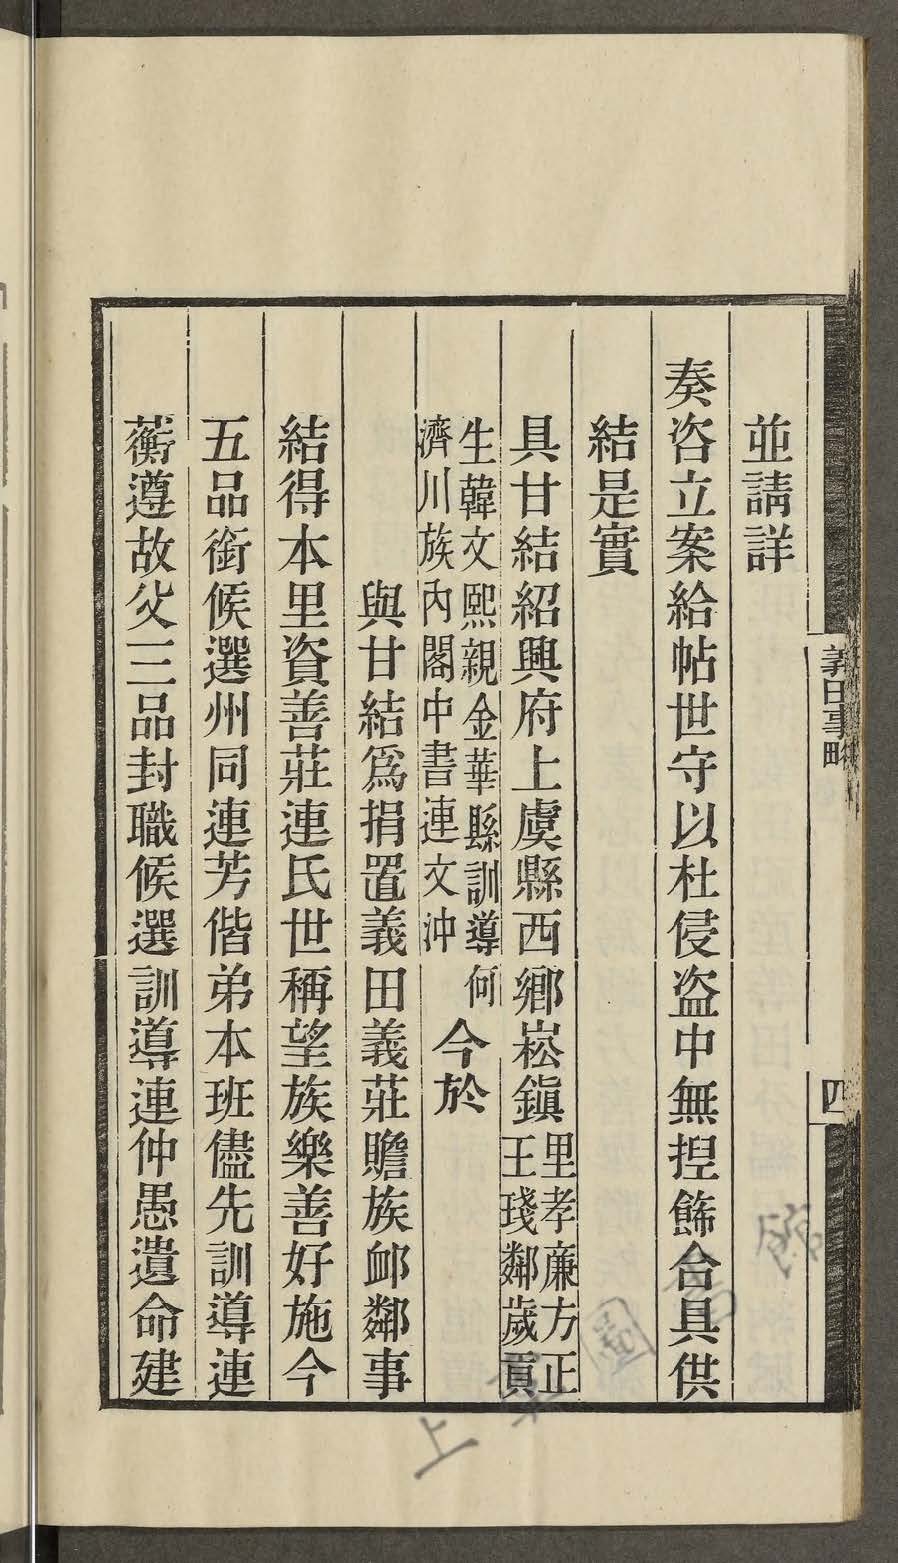 並請詳
奏咨立案給帖世守以杜侵盜中無揑餙合具供
結是實
具甘結紹興府上虞縣西鄉崧鎭里孝廉方正
王琖鄰歲貢
生韓文熙親金華縣訓導何
濟川族內閣中書連文沖
今於
與甘結爲捐置義田義莊贍族衈鄰事
結得本里資善莊連氏世稱望族樂善好施今
五品銜候選州同連芳偕弟本班儘先訓導連
蘅遵故父三品封職候選訓導連仲愚遺命建
義田事略
四
上
圖